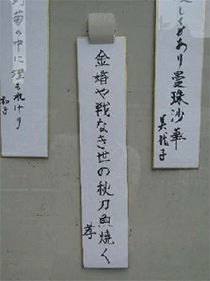 しくもあり曼珠沙華
美枝子
金婚や戦なき世の秋刀魚焼く
孝
菊の中に埋もれけり